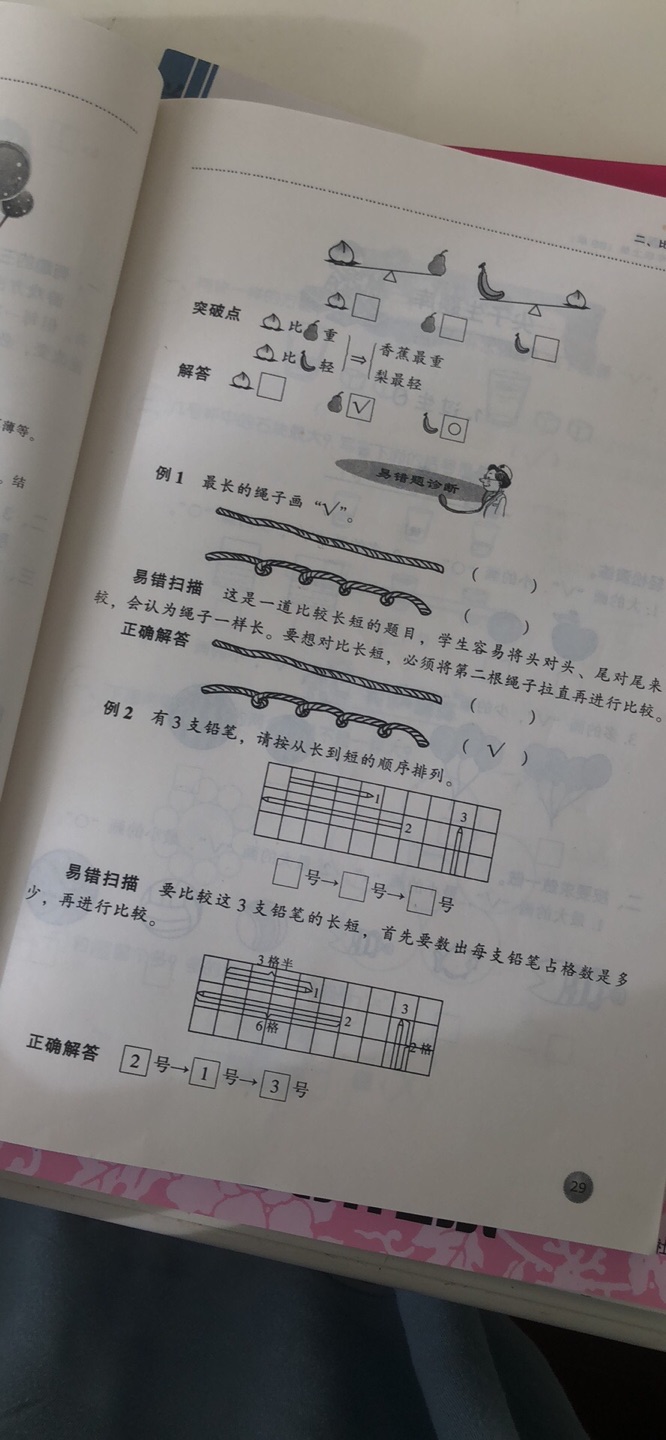 二、比
突破点 比 重
比 轻
⇒
香蕉最重
梨最轻
解答 √ ○
易错题诊断
例1 最长的绳子画“√”。
( )
( )
易错扫描 这是一道比较长短的题目，学生容易将头对头、尾对尾来
较，会认为绳子一样长。要想对比长短，必须将第二根绳子拉直再进行比较。
正确解答
( )
( √ )
例2 有3支铅笔，请按从长到短的顺序排列。
1
2
3
号→ 号→ 号
易错扫描 要比较这3支铅笔的长短，首先要数出每支铅笔占格数是多
少，再进行比较。
3格半
1
6格
2
3
2格
正确解答 2 号→ 1 号→ 3 号
29
薄等。
结
社